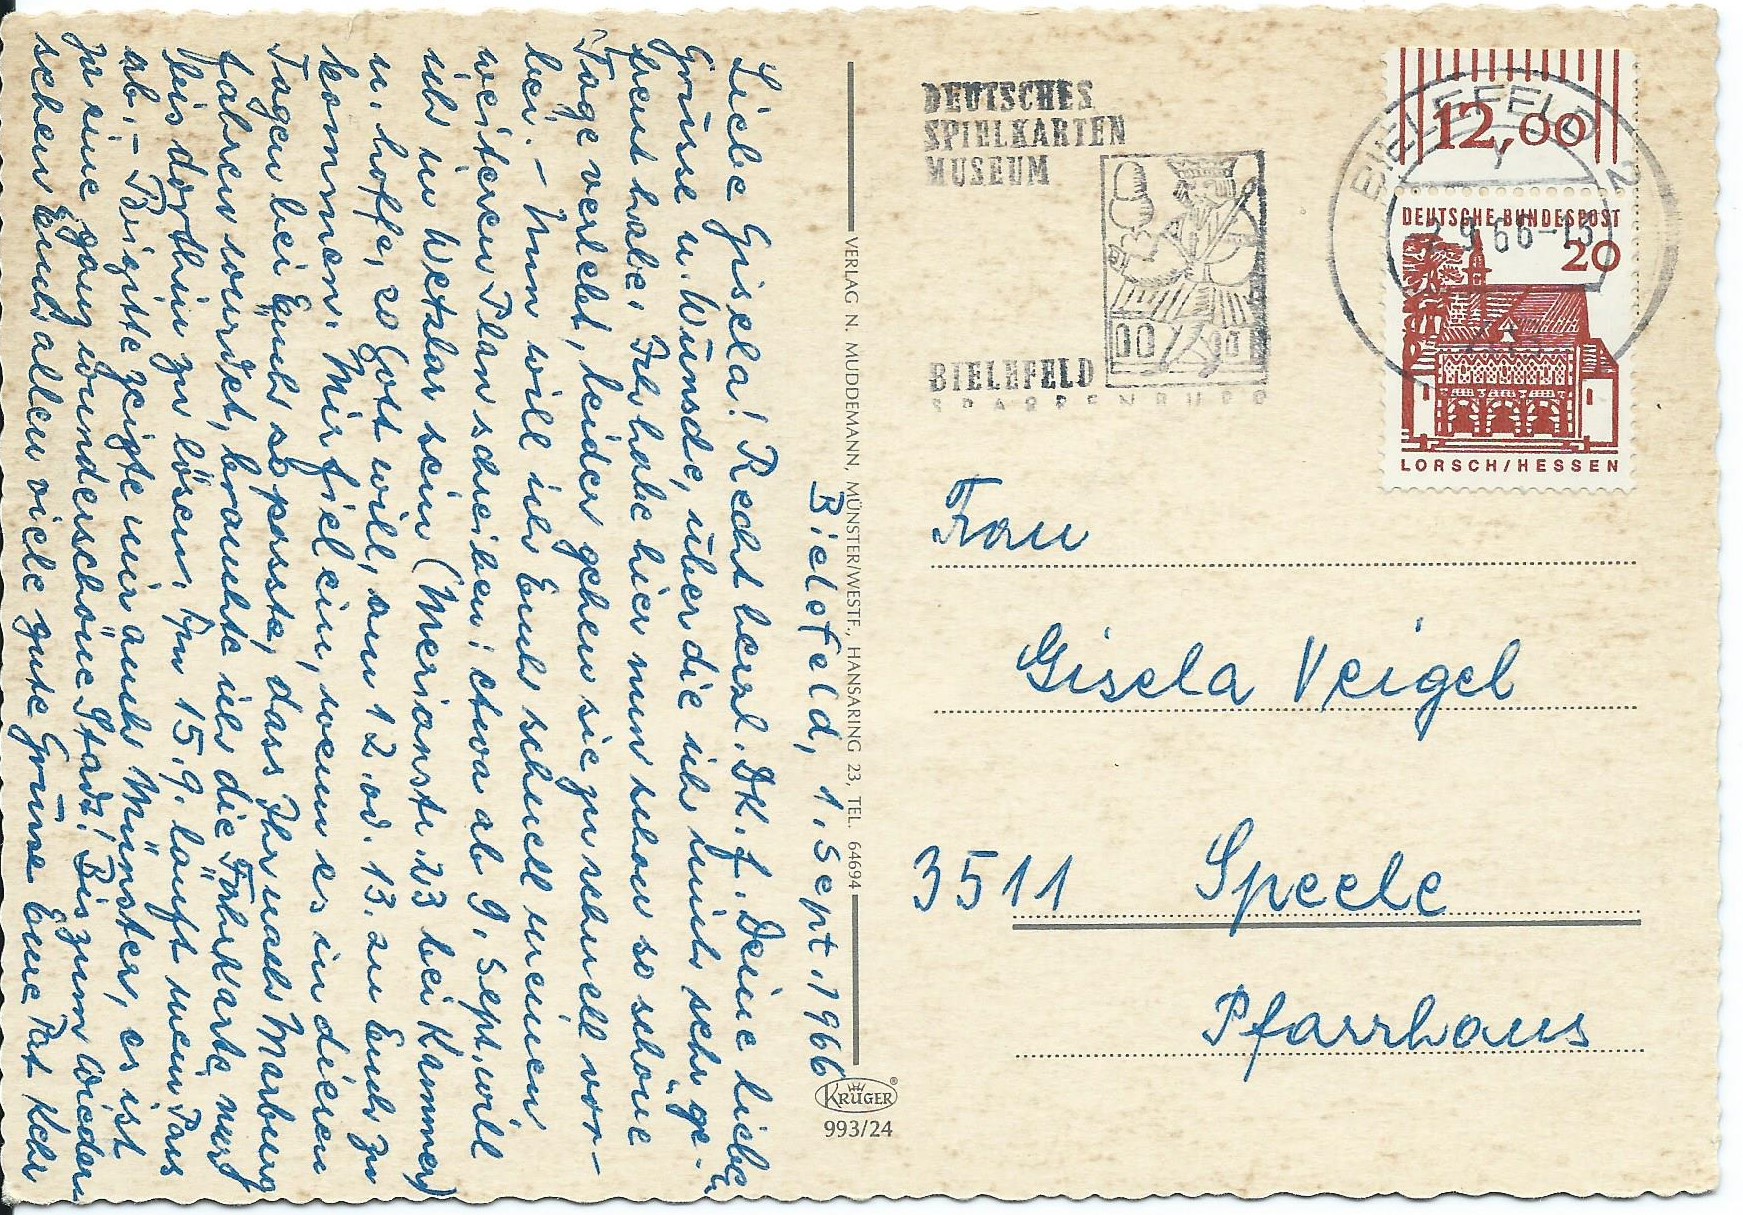 Bielefeld, 1. Sept. 1966
Liebe Gisela! Recht herzl. Dk. f. Deine lieben
Grüsse u. Wünsche, über die ich mich sehr ge-
freut habe. Ich habe hier nun schon so schöne
Tage verlebt, leider gehen sie zu schnell vor-
bei. - Nun will ich Euch schnell meinen
weiteren Plan schreiben: etwa ab 9. Sept. will
ich in Wetzlar sein (Merianstr. 23 bei Kammer)
u. hoffe, so Gott will, am 12. od. 13. zu Euch zu
kommen. Mir fiel ein, wenn es in diesen
Tagen bei Euch so passte, dass Ihr nach Marburg
fahren würdet, brauchte ich die Fahrkarte nur
bis dorthin zu lösen. Am 15.9. läuft mein Pass
ab. - Brigitte zeigte mir auch Münster, es ist
ja eine ganz wunderschöne Stadt! Bis zum Wieder-
sehen Euch allen viele gute Grüsse Eure
DEUTSCHES
SPIELKARTEN
MUSEUM
BIELEFELD
SPARRENBURG
BIELEFELD 2
y
2.9.66-13
12,00
DEUTSCHE BUNDESPOST
20
LORSCH/HESSEN
VERLAG N. MUDDEMANN, MÜNSTER/WESTF., HANSARING 23, TEL. 64694
Frau
Gisela Veigel
3511 Speele
Pfarrhaus
KRÜGER ®
993/24